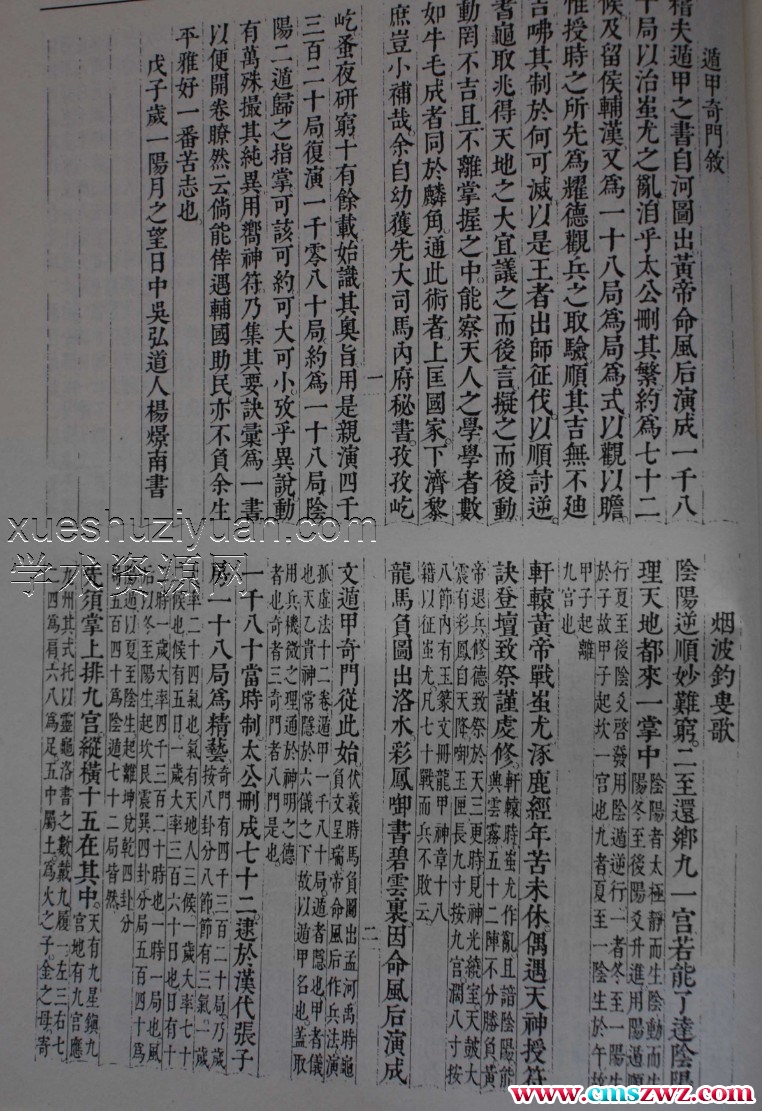 遁甲奇門敘
稽夫遁甲之書自河圖出黃帝命風后演成一千八
十局以治蚩尤之亂洎乎太公刪其繁約為七十二
候及留侯輔漢又為一十八局為局為式以觀以瞻
惟授時之所先為耀德觀兵之取驗順其吉無不廸
吉咈其制於何可滅以是王者出師征伐以順討逆
耆龜取兆得天地之大宜議之而後言擬之而後動
動罔不吉且不離掌握之中能察天人之學學者數
如牛毛成者同於麟角通此術者上匡國家下濟黎
庶豈小補哉余自幼獲先大司馬內府秘書孜孜屹
屹蚤夜研窮十有餘載始識其奧旨用是親演四千
三百二十局復演一千零八十局約為一十八局陰
陽二遁歸之指掌可該可約可大可小攷乎異說動
有萬殊撮其純異用嚮神符乃集其要訣彙為一書
以便開卷瞭然云倘能倖遇輔國助民亦不負余生
平雅好一番苦志也
戊子歲一陽月之望日中吳弘道人楊㬌南書
一
烟波釣叟歌
陰陽逆順妙難窮二至還鄉九一宮若能了達陰陽
理天地都來一掌中陰陽者太極靜而生陰動而生
陽冬至後陽爻升進用陽遁順
行夏至後陰爻啓發用陰遁逆行一者冬至一陽生
於子故甲子起坎一宮也九者夏至一陰生於午故
甲子起離
九宮也
軒轅黃帝戰蚩尤涿鹿經年苦未休偶遇天神授符
訣登壇致祭謹虔修軒轅時蚩尤作亂且諳陰陽能
興雲霧五十二陣不分勝負黃
帝退兵修德致祭於天三更時見神光繞室天皷大
震有彩鳳自天降啣玉匣長九寸按九宮濶八寸按
八節內有玉篆文冊龍甲神章十八
籍以征蚩尤凡七十戰而兵不敗云
龍馬負圖出洛水彩鳳啣書碧雲裏因命風后演成
二
文遁甲奇門從此始伏羲時馬負圖出孟河禹時龜
負文呈瑞帝命風后作兵法演
孤虛法十二卷遁甲一千八十局遁者隱也甲者儀
也天乙貴神常隱於六儀之下故以遁甲名也蓋取
用兵機微之理通於神明之德
者也奇者三奇門者八門是也
一千八十當時制太公刪成七十二逮於漢代張子
房一十八局為精藝奇門有四千三百二十局乃歲
按八卦分八節節有三氣一歲
二十四氣也氣有天地人三候一歲大率七十
候也候有五日一歲大率三百六十日也日有十
時一歲大率四千三百二十時也一時一局也風
后以冬至陽生起坎艮震巽四卦分局五百四十為
遁也以夏至陰生起離坤兌乾四卦分
局五百四十為陰遁七十二局皆然
先須掌上排九宮縱橫十五在其中天有九星鎮九
宮地有九宮應
九州其式托以靈龜洛書之數戴九履一左三右七
二四為肩六八為足五中屬土為火之子金之母寄
xueshuziyuan.com
学术资源网
www.cmszwz.com